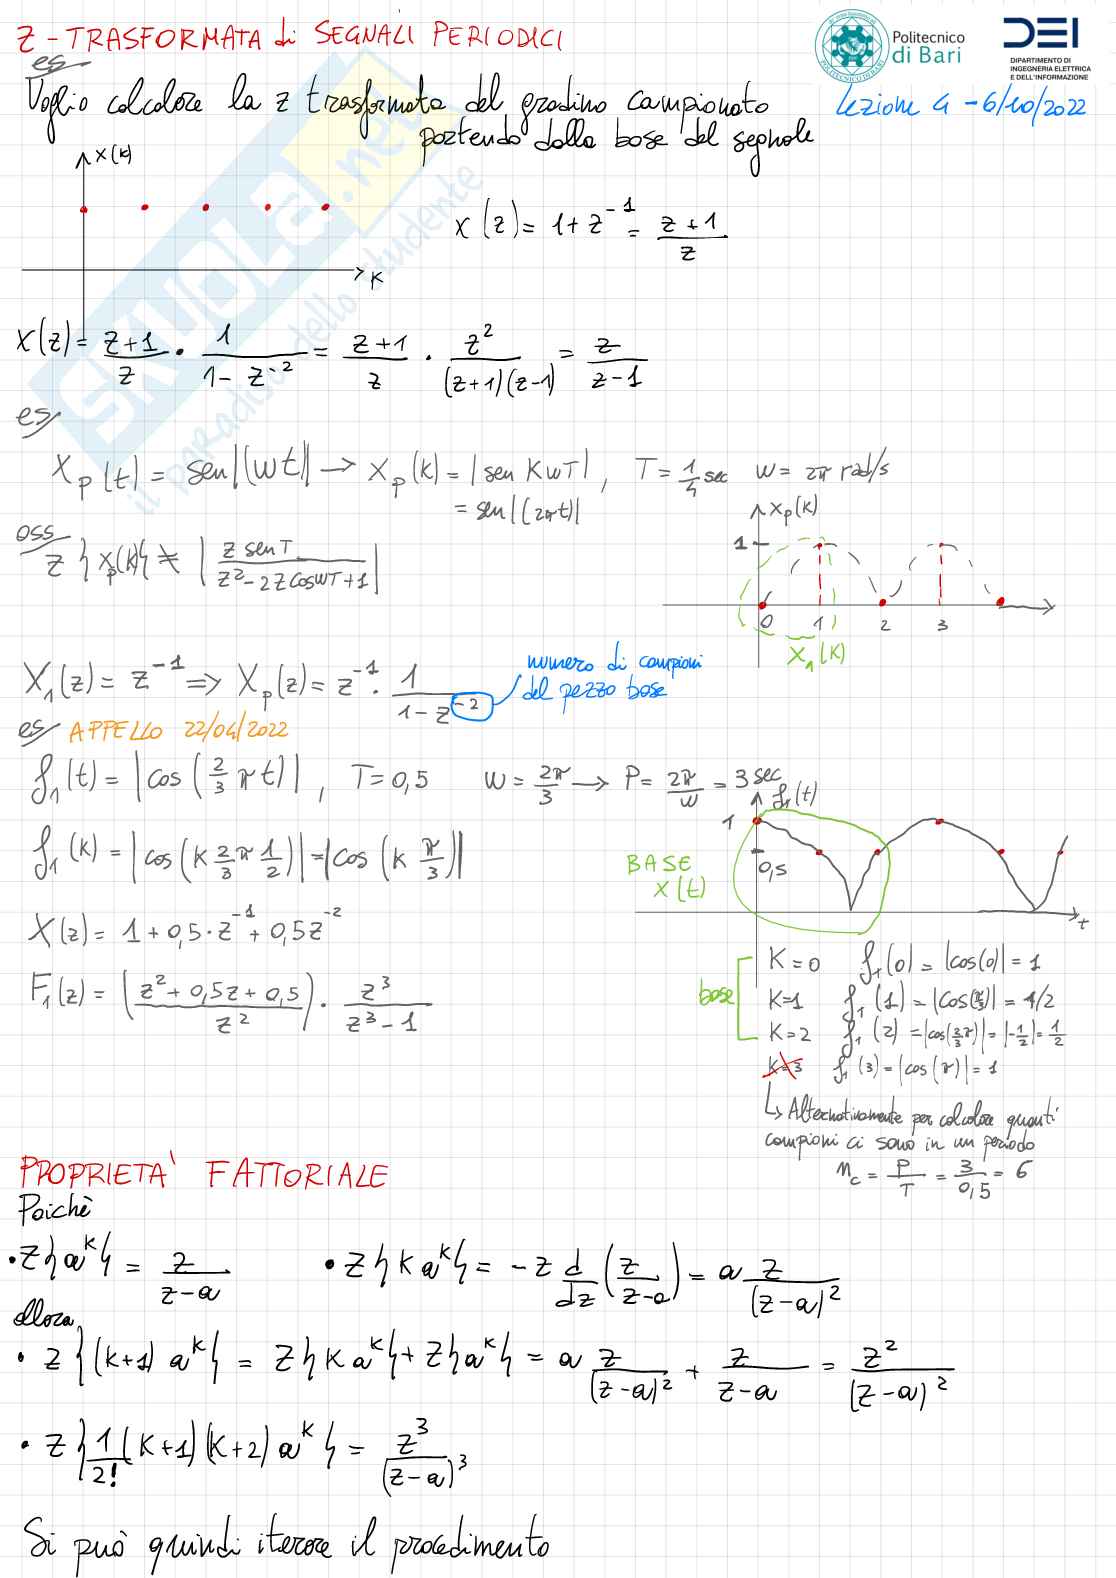 Z-TRASFORMATA di SEGNALI PERIODICI
Politecnico
di Bari
DEI
DIPARTIMENTO DI
INGEGNERIA ELETTRICA
E DELL'INFORMAZIONE
es
Lezione 4 - 6/10/2022
Voglio calcolare la z trasformata del gradino campionato
partendo dalla base del segnale
x(k)
K
X(z) = 1 + z^-1 = (z+1)/z
X(z) = (z+1)/z · 1/(1-z^-2) = (z+1)/z · z^2/((z+1)(z-1)) = z/(z-1)
es
x_p(t) = sen|(wt)| → x_p(k) = |sen KwT|, T = 1/4 sec w = 2π rad/s
= sen|(2πt)|
oss
Z{x_p(k)} ≠ |(z senT)/(z^2 - 2z coswT + 1)|
x_p(k)
1
0 1 2 3
x_1(k)
X_1(z) = z^-1 ⇒ X_p(z) = z^-1 · 1/(1-z^-2)
numero di campioni
del pezzo base
es APPELLO 22/04/2022
f_1(t) = |cos(2/3 π t)|, T = 0,5 w = 2π/3 → P = 2π/w = 3 sec
f_1(t)
1
0,5
t
BASE
x(t)
f_1(k) = |cos(k 2/3 π 1/2)| = |cos(k π/3)|
X(z) = 1 + 0,5·z^-1 + 0,5z^-2
F_1(z) = ((z^2 + 0,5z + 0,5)/z^2) · z^3/(z^3-1)
base
K=0 f_1(0) = |cos(0)| = 1
K=1 f_1(1) = |cos(π/3)| = 1/2
K=2 f_1(2) = |cos(2/3 π)| = |-1/2| = 1/2
K=3 f_1(3) = |cos(π)| = 1
↳ Alternativamente per calcolare quanti
campioni ci sono in un periodo
n_c = P/T = 3/0,5 = 6
PROPRIETA' FATTORIALE
Poichè
• Z{a^k} = z/(z-a) • Z{k a^k} = -z d/dz (z/(z-a)) = a z/(z-a)^2
allora
• Z{(k+1) a^k} = Z{k a^k} + Z{a^k} = a z/(z-a)^2 + z/(z-a) = z^2/(z-a)^2
• Z{1/2! (k+1)(k+2) a^k} = z^3/(z-a)^3
Si può quindi iterare il procedimento
SKUOLA.net
il paradiso dello studente